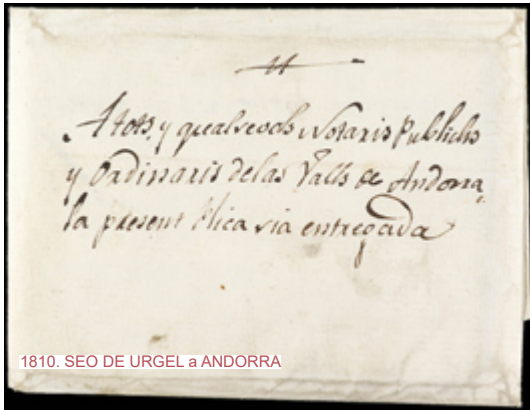 A tots, y qualsevols Notaris Publichs
y Ordinaris de las Valls de Andorra,
la present sia entregada
1810. SEO DE URGEL a ANDORRA